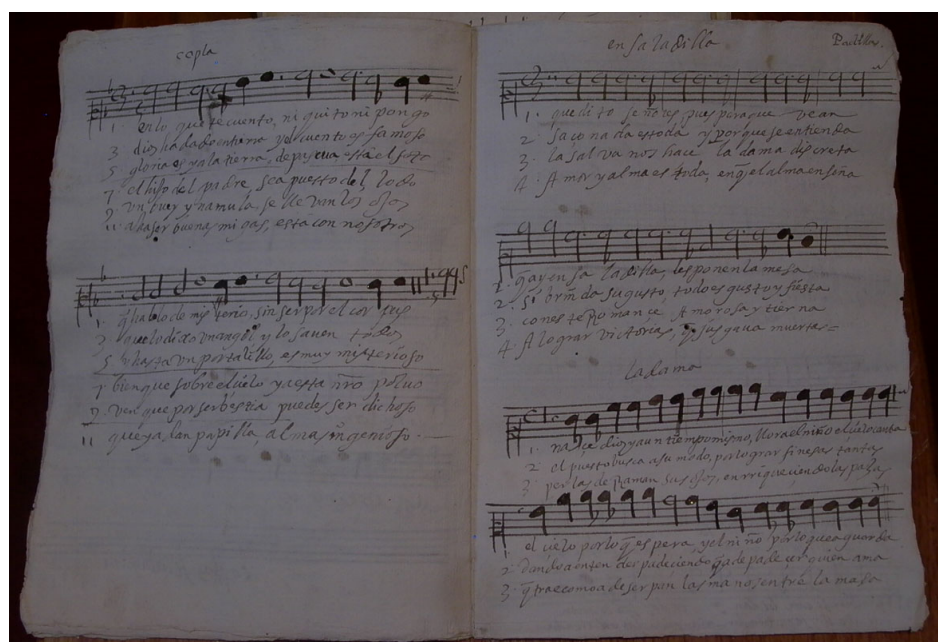 copla
1. en lo que te cuento, ni quito ni pongo
3 dios ha dado entierra y el cuento es famoso
5 gloria es ya la tierra, de pascua esta el soto
7. el hijo del padre sea puesto del lodo
9 un buey y na mula se lleuan los ojos
11 a haser buenas migas, esta con nosotros
1.
3
5 hasta un portalillo, es muy misterioso
7 bien que sobre el cielo ya esta nro poluo
9. ven que por ser bestia puedes ser dichoso
11 que ya san papilla, al mas ingenioso.
ensaladilla
Padilla.
1. quedito señores, pues para que vean
2 saçonada es toda y porque se entienda
3. la salva nos hace la dama discreta
4. Amor y alma es toda, en q̃ el alma enseña
1. q̃ ay ensaladilla, les ponen la mesa
2. si brinda su gusto, todo es gusto y fiesta
3. con este Romance Amorosa y tierna
4. A lograr victorias, y sus gava muertas
la dama
1. nace dios y a un tiempo mismo, llora el niño el cielo canta
2 el puesto busca a su modo, por lograr finesas tantas
3 perlas derraman sus ojos, enrriqueciendo las pajas
1 el cielo por lo q̃ espera y el niño por lo que aguarda
2. dando a entender padeciendo q̃ a de padecer quien ama
3. q̃ trae como a de ser pan las manos entre la masa